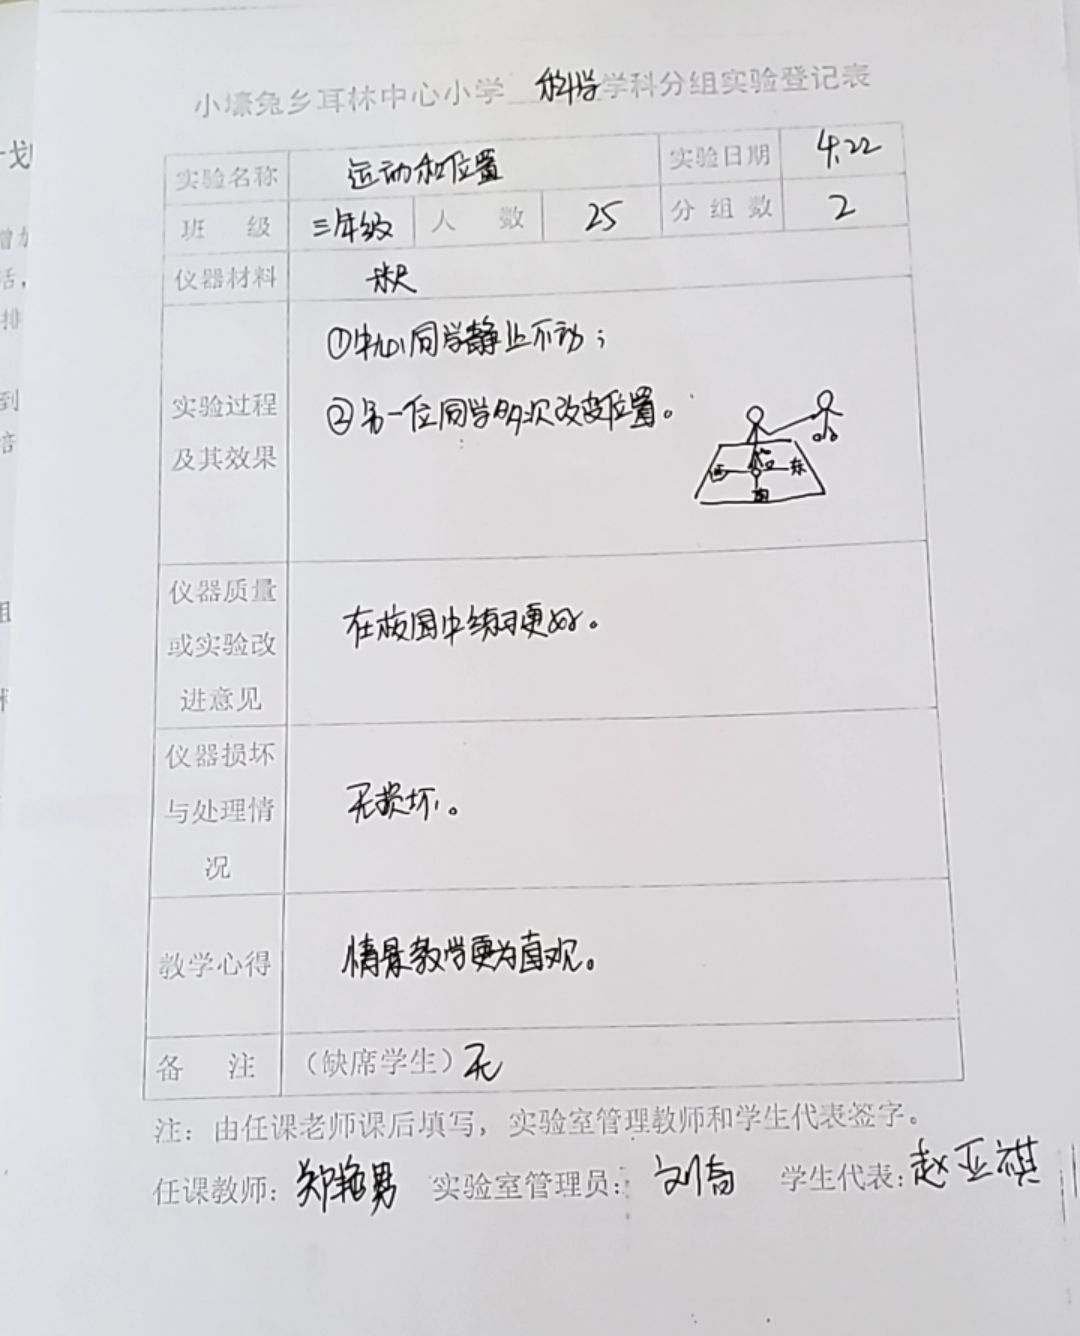 小壕兔乡耳林中心小学 科学学科分组实验登记表
实验名称 运动和位置 实验日期 4.22
班 级 三年级 人 数 25 分组数 2
仪器材料 米尺
①中心同学静止不动；
②另一位同学多次改变位置。
实验过程
及其效果
西 东
南
仪器质量
或实验改
进意见
在校园中练习更好。
仪器损坏
与处理情
况
无损坏。
教学心得 情景教学更为直观。
备 注 （缺席学生）无
注：由任课老师课后填写，实验室管理教师和学生代表签字。
任课教师：郑艳男 实验室管理员：刘高 学生代表：赵亚祺